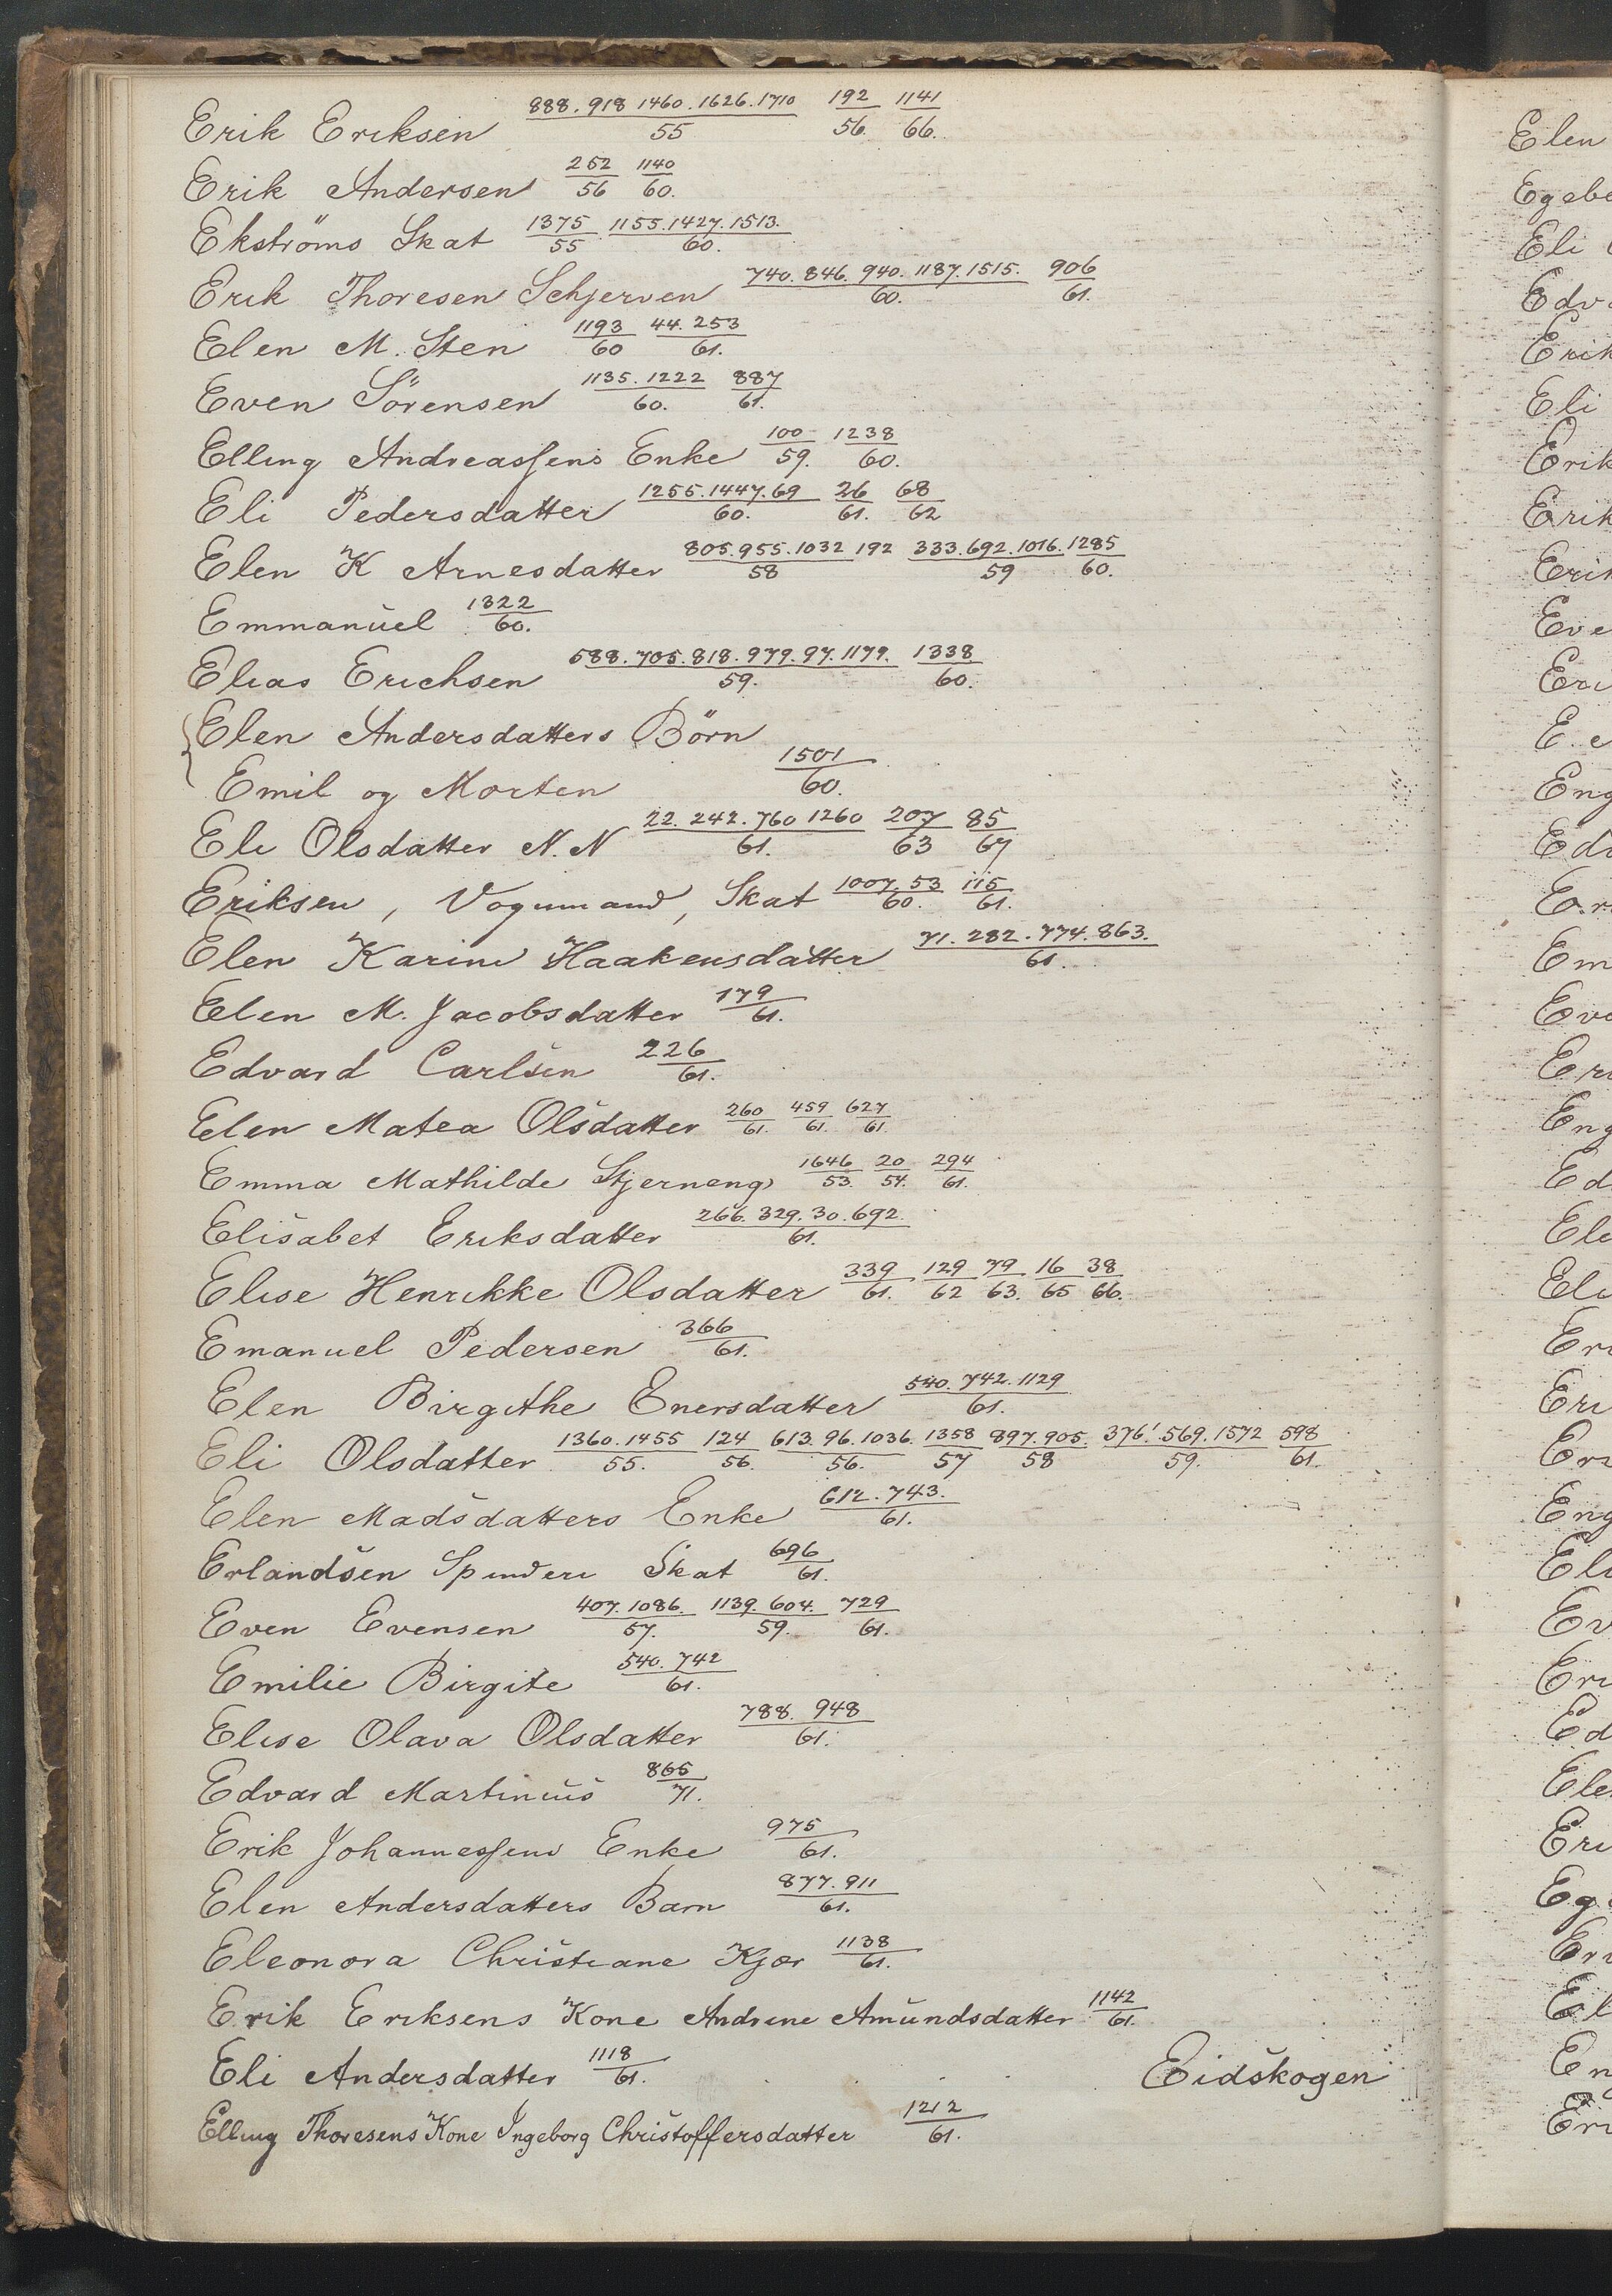 Erik Eriksen 888. 918 1460. 1626. 1710/55 192/56. 1141/66.
Erik Andersen 252/56 1140/60.
Ekströms Skat 1375/55 1155. 1427. 1513./60.
Erik Thoresen Schjerven 740. 846. 940. 1187. 1515./60. 906/61.
Elen M. Sten 1193/60 44. 253/61.
Even Sörensen 1135. 1222/60. 887/61.
Elling Andreassens Enke 100/59. 1238/60.
Eli Pedersdatter 1255. 1447. 69/60. 26/61. 68/62
Elen K Arnesdatter 805. 955. 1032/58 192 333. 692. 1016./59 1285/60.
Emmanuel 1322/60.
Elias Erichsen 588. 705. 818. 979. 97. 1179./59. 1338/60.
Elen Andersdatters Börn
Emil og Morten 1501/60.
Eli Olsdatter N. N 22. 242. 760 1260/61. 207/63 85/67
Eriksen, Vognmand, Skat 1007. 53/60. 115/61.
Elen Karine Haakensdatter 71. 282. 774. 863./61.
Elen M. Jacobsdatter 179/61.
Edvard Carlsen 226/61.
Elen Matea Olsdatter 260/61. 459/61. 627/61.
Emma Mathilde Stjerneng 1646/53. 20/54. 294/61.
Elisabet Eriksdatter 266. 329. 30. 692./61.
Elise Henrikke Olsdatter 339/61. 129/62 79/63. 16/65 38/66.
Emanuel Pedersen 366/61.
Elen Birgithe Enersdatter 540. 742. 1129/61.
Eli Olsdatter 1360. 1455/55. 124/56. 613. 96. 1036./56. 1358/57 897. 905./58 376. 569. 1572/59. 598/61.
Elen Madsdatters Enke 612. 743./61.
Erlandsen Skat 696/61.
Even Evensen 407. 1086./57. 1139. 604./59. 729/61.
Emilie Birgite 540. 742/61.
Elise Olava Olsdatter 788. 948/61.
Edvard Martinius 865/71.
Erik Johannessens Enke 975/61.
Elen Andersdatters Barn 877. 911/61.
Eleonora Christiane Kjær 1138/61.
Erik Eriksens Kone Andrine Amundsdatter 1142/61.
Eli Andersdatter 1118/61. Eidskogen
Elling Thoresens Kone Ingeborg Christoffersdatter 1212/61.